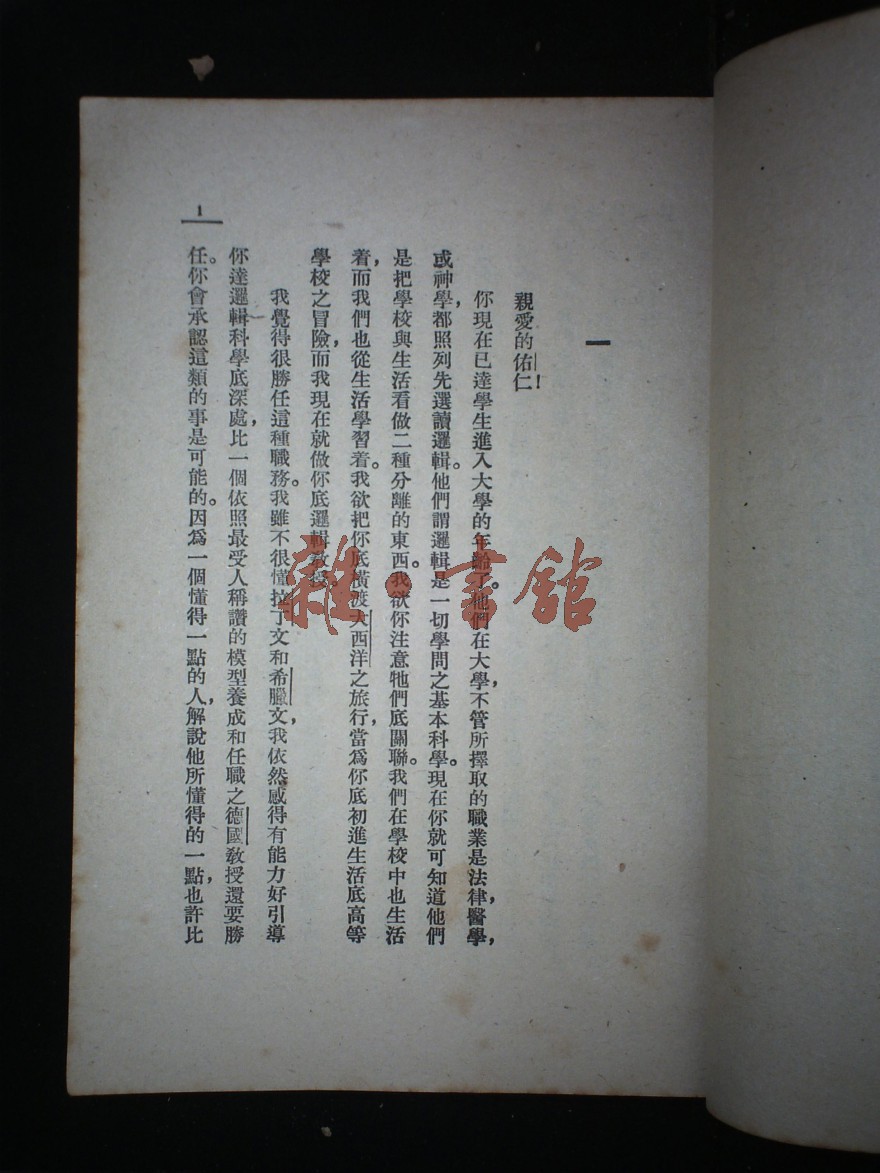 一
親愛的佑仁!
你現在已達學生進入大學的年齡了。他們在大學,不管所擇取的職業是法律,醫學,
或神學,都照列先選讀邏輯。他們謂邏輯是一切學問之基本科學。現在你就可知道他們
是把學校與生活看做二種分離的東西。我欲你注意牠們底關聯。我們在學校中也生活
着,而我們也從生活學習着。我欲把你底橫渡大西洋之旅行,當爲你底初進生活底高等
學校之冒險,而我現在就做你底邏輯教授。
我覺得很勝任這種職務。我雖不很懂拉丁文和希臘文,我依然感得有能力好引導
你達邏輯科學底深處,比一個依照最受人稱讚的模型養成和任職之德國敎授還要勝
任。你會承認這類的事是可能的。因爲一個懂得一點的人,解說他所懂得的一點,也許比
1
雜·書館